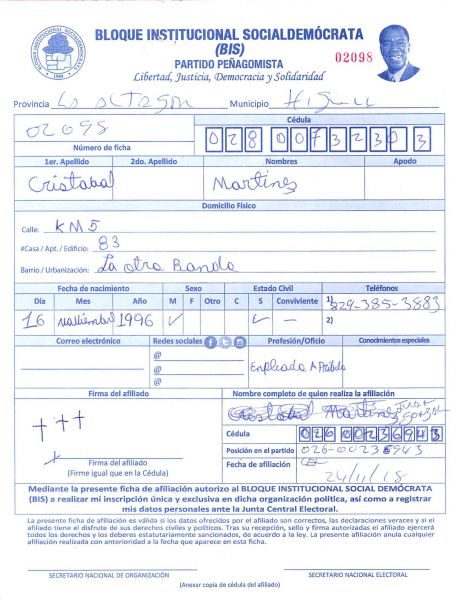 BLOQUE INSTITUCIONAL SOCIALDEMÓCRATA
(BIS)
PARTIDO PEÑAGOMISTA
02098
Libertad, Justicia, Democracia y Solidaridad
BLOQUE INSTITUCIONAL SOCIALDEMOCRATA
Provincia Municipio
02098
Cédula
028 0073230 3
Número de ficha
1er. Apellido 2do. Apellido Nombres Apodo
Cristobal Martinez
Domicilio Físico
Calle: KM5
#Casa / Apt. / Edificio: 83
Barrio / Urbanización: La otra Banda
Fecha de nacimiento Sexo Estado Civil Teléfonos
Día Mes Año M F Otro C S Conviviente 1) 829-385-3883
16 1996 2)
Correo electrónico Redes sociales Profesión/Oficio Conocimientos especiales
@
@
@
Empleado
Firma del afiliado Nombre completo de quien realiza la afiliación
Cristobal Martinez Juan
Cédula 026 0023694 3
Posición en el partido 026-0023
Firma del afiliado
(Firme igual que en la Cédula)
Fecha de afiliación
24/11/18
Mediante la presente ficha de afiliación autorizo al BLOQUE INSTITUCIONAL SOCIAL DEMÓCRATA
(BIS) a realizar mi inscripción única y exclusiva en dicha organización política, así como a registrar
mis datos personales ante la Junta Central Electoral.
La presente ficha de afiliación es válida si los datos ofrecidos por el afiliado son correctos, las declaraciones veraces y si el
afiliado tiene el disfrute de sus derechos civiles y políticos. Tras su recepción, sello y firma autorizadas el afiliado ejercerá
todos los derechos y los deberes estatutariamente sancionados, de acuerdo a la ley. La presente afiliación anula cualquier
afiliación realizada con anterioridad a la fecha que aparece en esta ficha.
SECRETARIO NACIONAL DE ORGANIZACIÓN SECRETARIO NACIONAL ELECTORAL
(Anexar copia de cédula del afiliado)